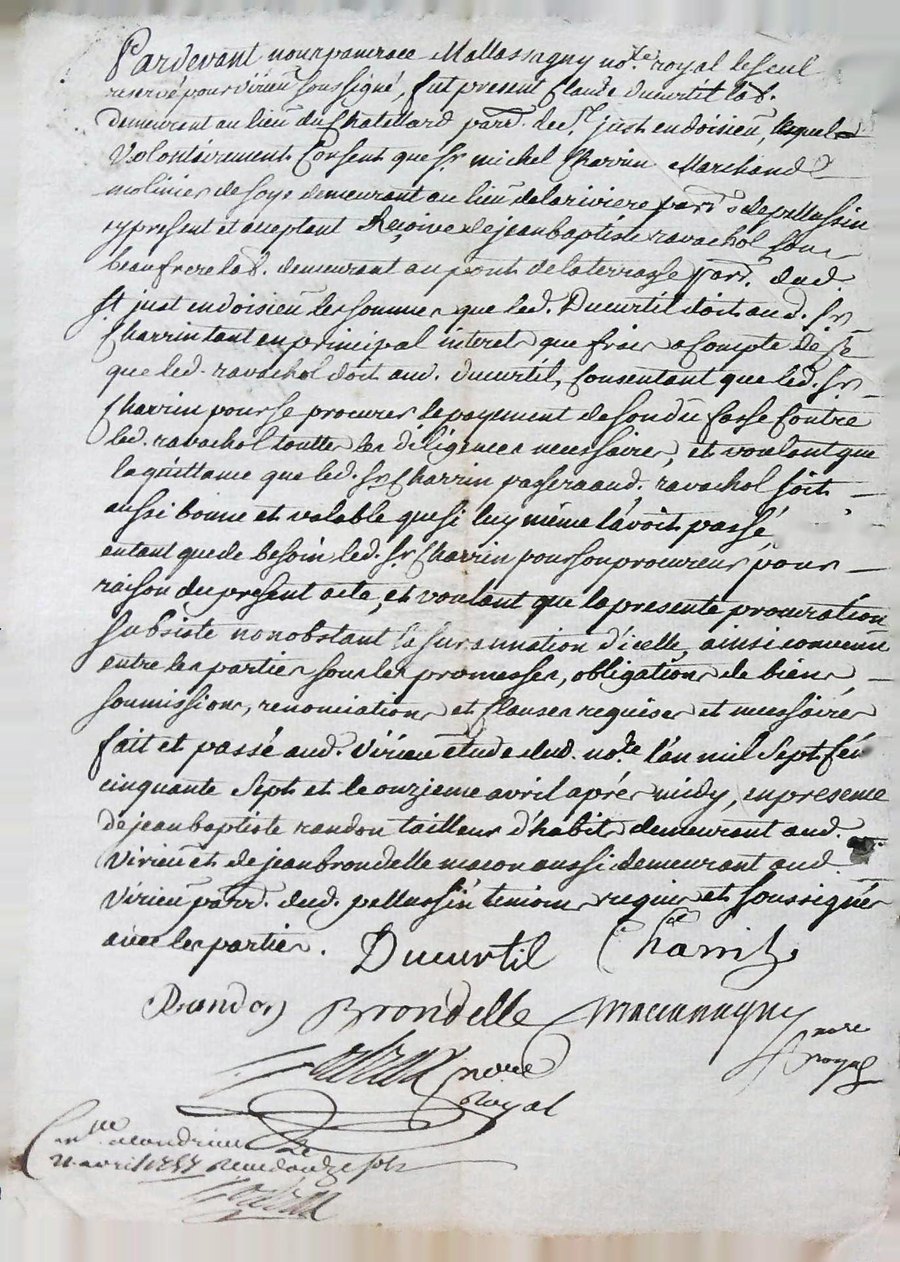 Pardevant nous pancrace Mallassagny no.re royal le seul
reservé pour virieu soussigné, fut present Claude ducurtil lab.
demeurant au lieu du Chatellard parr. de St. just en doisieu, lequel
Volontairement Consent que Sr. michel Charrin Marchand
molinier de soye demeurant au lieu de la riviere parr. de pellussin
cy present et acceptant Reçoive de jean baptiste ravachol son
beaufrere lab. demeurant au pont de la terrasse parr. dud.
St just en doisieu les sommes que led. Ducurtil doit aud. Sr.
Charrin tant en principal interets que frais a Compte de ce
que led. ravachol doit aud. ducurtil, Consentant que led. Sr.
Charrin pour se procurer le payement de son dû fasse Contre
led. ravachol toutte les diligences necessaires, et voulant que
la quittance que led. Sr. Charrin passera aud. ravachol soit
aussi bonne et valable que si luy même l'avoit passé,
en tant que de besoin led. Sr. Charrin pour son procureur pour
raison du present acte, et voulant que la presente procuration
subsiste nonobstant la surannation d'icelle, ainsi convenu
entre les parties sous les promesses, obligations de biens,
soumissions, renonciations et Clauses requises et necessaires
fait et passé aud. virieu étude dud. no.re l'an mil sept Cen
cinquante sept et le onzieme avril aprés midy, en presence
de jean baptiste randon tailleur d'habits demeurant aud.
virieu et de jean brondelle macon aussi demeurant aud.
virieu parr. dud. pellussin temoins requis et soussignés
avec les parties. Ducurtil Charrin
Randon Brondelle
no.re royal
noire
Royal
21 avril 1757 Reçu douze sols